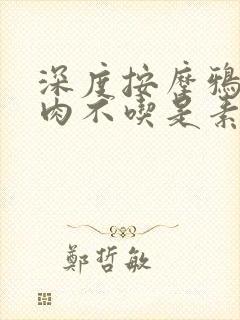 深度按摩鴉
肉不喫是素
鄭哲敏